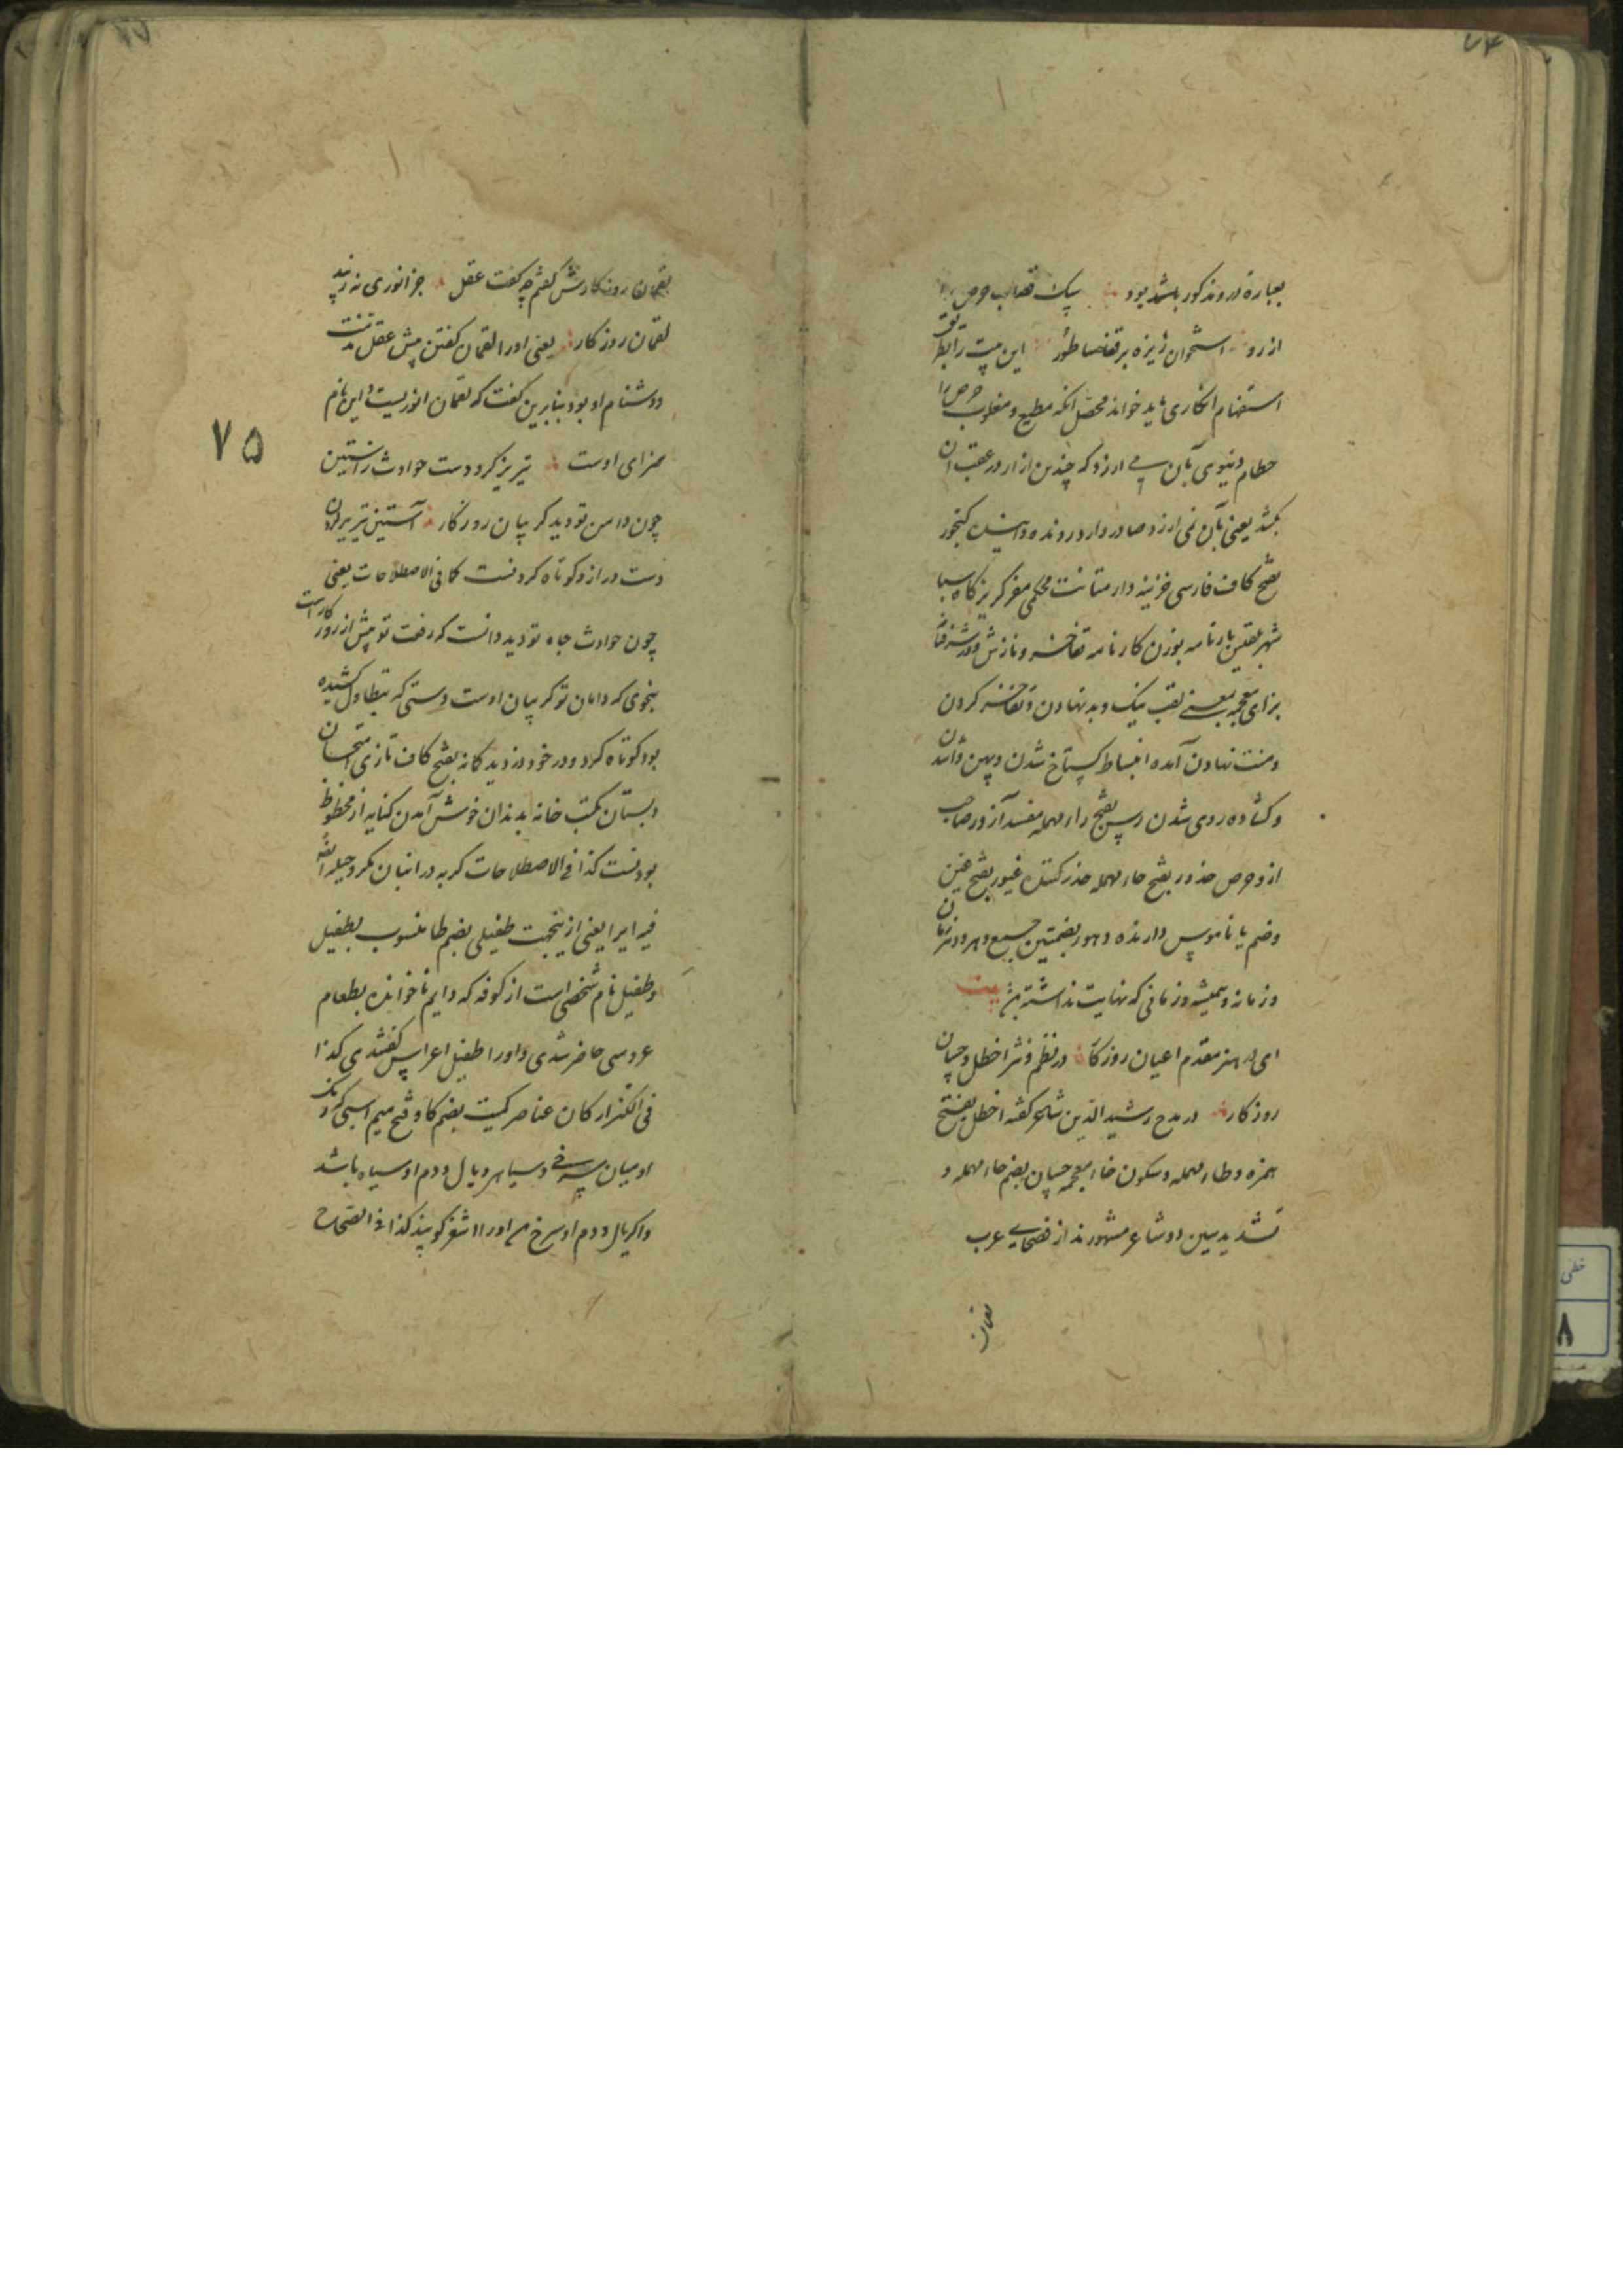 ۷۴
بعباره در و مذکور باشد بود پیک قصاب حرص را
ارزو استخوان ریزه بر قفا ساطور این بیت را بطریق
استفهام انکاری باید خواند محصل انکه مطیع و مغلوب حرص را
حطام دنیوی بآن می ارزد که چندین ازار در عقب آن
بکشد یعنی بآن نمی ارزد صادر و وارد رونده و آینده کنجور
بفتح کاف فارسی خزینه دار متانت محکمی مفر کریزکاه سبا
شهر بلقیس بارنامه بوزن کارنامه تفاخر و نازش
برای معجمه بمعنی لقب نیک و بد نهادن و تفاخر کردن
و منت نهادن آمده انبساط کستاخ شدن و پهن واشدن
و کشاده روی شدن رسن بفتح راء مهمله مفسد آز و صاحب
از و حرص حذور بفتح حاء مهمله حذر کننده غیور بفتح غین
و ضم یا ناموس دارنده دهور بضمتین جمع دهر و دهر زمان
و زمانه و همیشه و زمانی که نهایت نداشته بیت
ای در هنر مقدم اعیان روزکار در نظم و نثر اخطل و حسان
روزکار در مدح رشید الدین شاعر کفته اخطل بفتح
همزه و طاء مهمله و سکون خاء معجمه حسان بضم حاء مهمله و
تشدید سین دو شاعر مشهورند از فصحای عرب
لقمان
لقمان روزکارش کفتم چه کفت عقل جز انوری نه زیبد
لقمان روزکار یعنی اورا لقمان کفتن پیش عقل مذمت
و دشنام او بود بنابرین کفت که لقمان انوریست و این نام
۷۵
سزای اوست تیریز کرد دست حوادث ز آستین
چون دامن تو دید کریبان روزکار آستین تیریز کردن
دست دراز و کوتاه کردنست کما فی الاصطلاحات یعنی
چون حوادث جاه تو دید دانست که رفعت تو پیش از روزکار است
بنحوی که دامان تو کریبان اوست دستی که بتطاول کشیده
بود کوتاه کرد و در خود دزدید کانه بفتح کاف تازی امتحان
دبستان مکتب خانه بدندان خوش آمدن کنایه از محظوظ
بودنست کذا فی الاصطلاحات کربه در انبان مکر و حیله
فیه ایرا یعنی ازینجهت طفیلی بضم طا منسوب بطفیل
و طفیل نام شخصی است از کوفه که دایم ناخوانده بطعام
عروسی حاضر شدی و اورا طفیل اعراس کفتندی کذا
فی الکنز ارکان عناصر کمیت بضم کاف و فتح میم اسبی که رنک
او میان سرخی و سیاهی و یال و دم او سیاه باشد
و اکر یال و دم او سرخ بود اورا اشقر کویند کذا فی الصحاح
خطی
۸